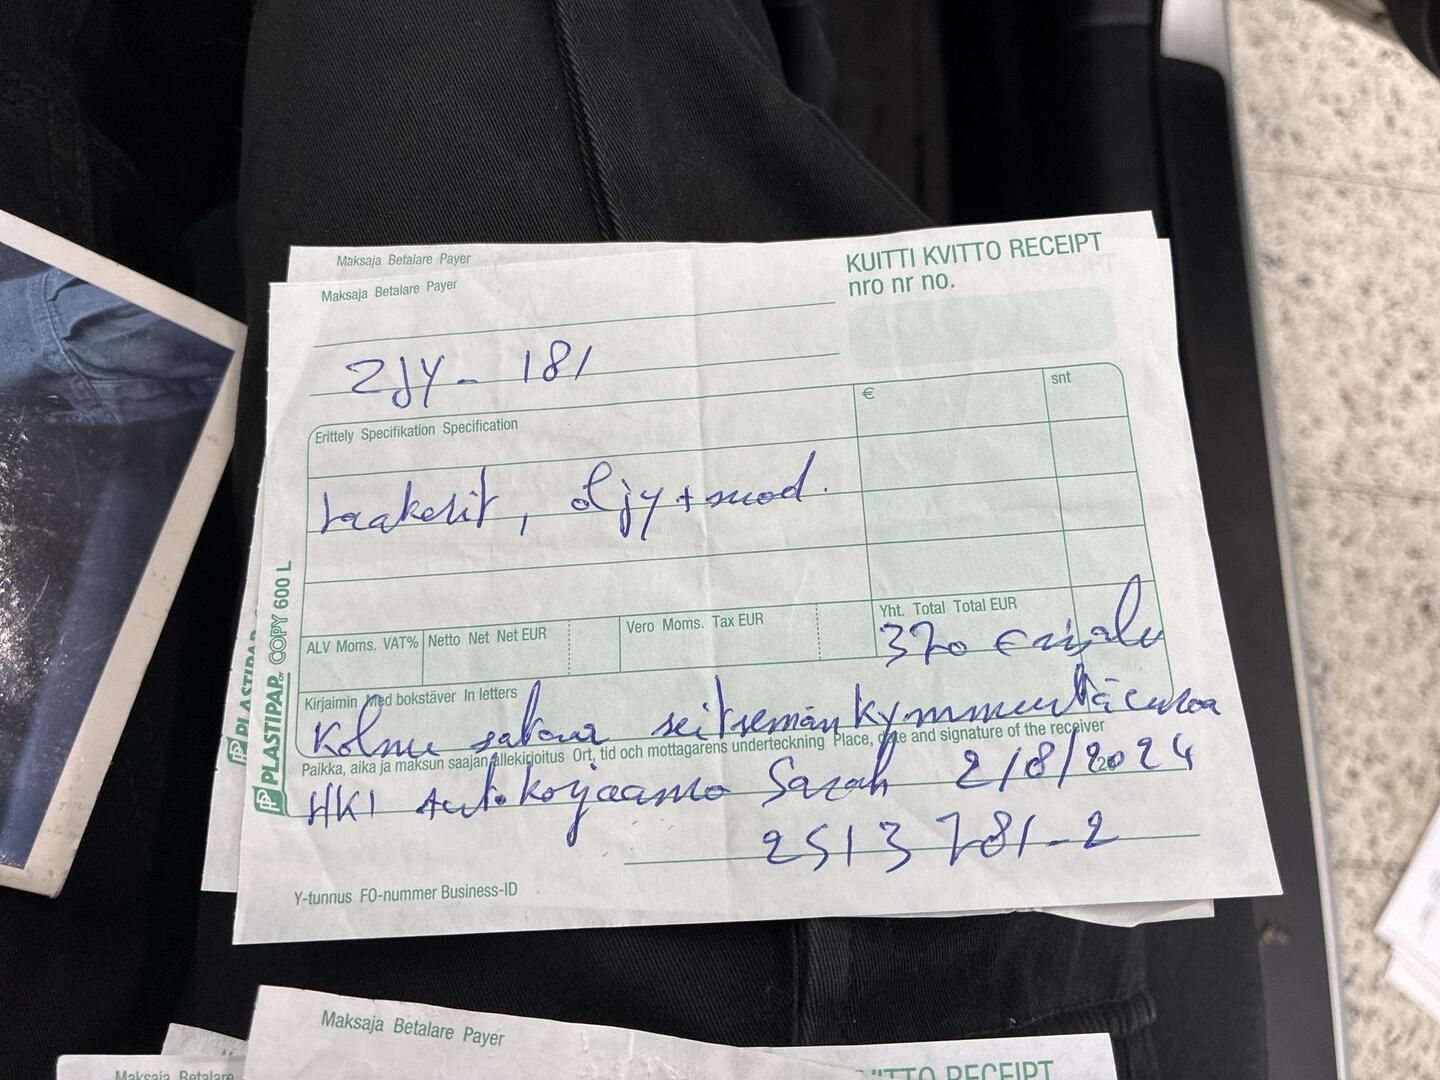 Maksaja Betalare Payer
KUITTI KVITTO RECEIPT
Maksaja Betalare Payer
nro nr no.
ZJY - 181
€ snt
Erittely Specifikation Specification
laakerit, öljy + suod.
PLASTIPAP
PLASTIPAP COPY 600 L
ALV Moms. VAT% Netto Net Net EUR Vero Moms. Tax EUR Yht. Total Total EUR
370
Kirjaimin Med bokstäver In letters
Kolme sataa seitsemänkymmentä euroa
Paikka, aika ja maksun saajan allekirjoitus Ort, tid och mottagarens underteckning Place, date and signature of the receiver
HKI Autokorjaamo Sarah 2/8/2024
2513781-2
Y-tunnus FO-nummer Business-ID
Maksaja Betalare Payer
Maksaja Betalare
KVITTO RECEIPT